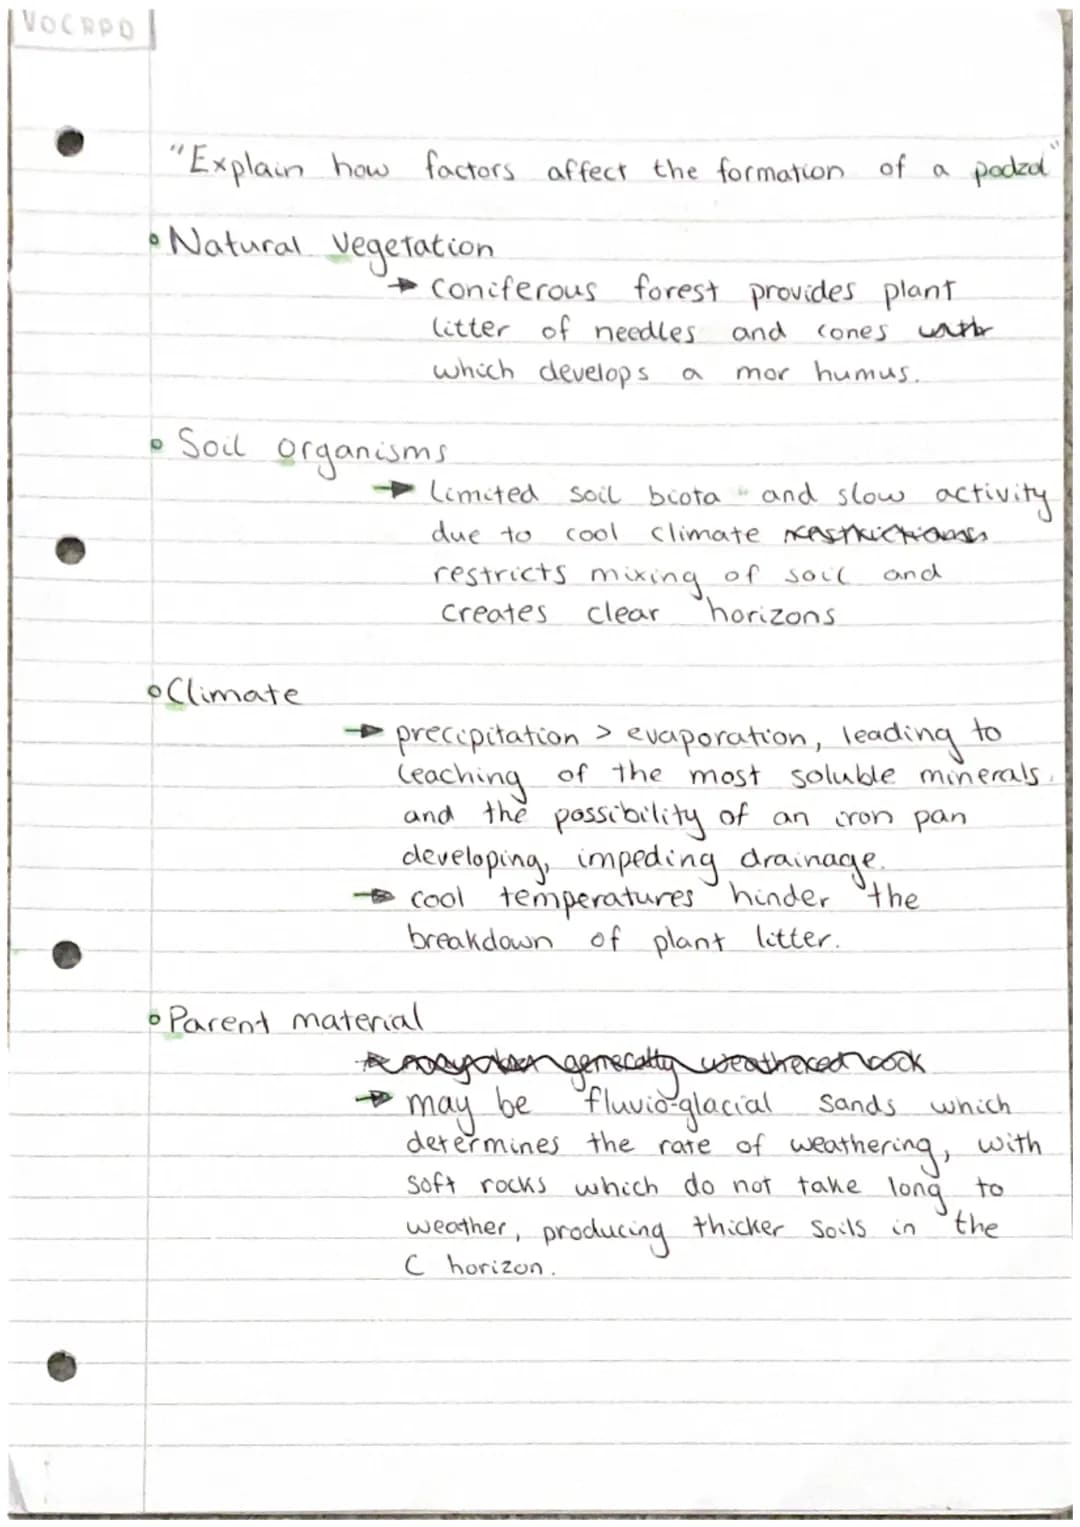 VOCRPD
"Explain how factors affect the formation of a podzol"
• Natural Vegetation
→ coniferous forest provides plant
litter of needles and cones
which develops a mor humus.
• Soil organisms
→ Limited soil biota and slow activity
due to cool climate
restricts mixing of soil and
creates clear horizons
• Climate
→ precipitation > evaporation, leading to
leaching of the most soluble minerals.
and the possibility of an iron pan
developing, impeding drainage.
→ cool temperatures hinder the
breakdown of plant litter.
• Parent material
→ may be fluvio-glacial sands which
determines the rate of weathering, with
soft rocks which do not take long to
weather, producing thicker soils in the
C horizon.